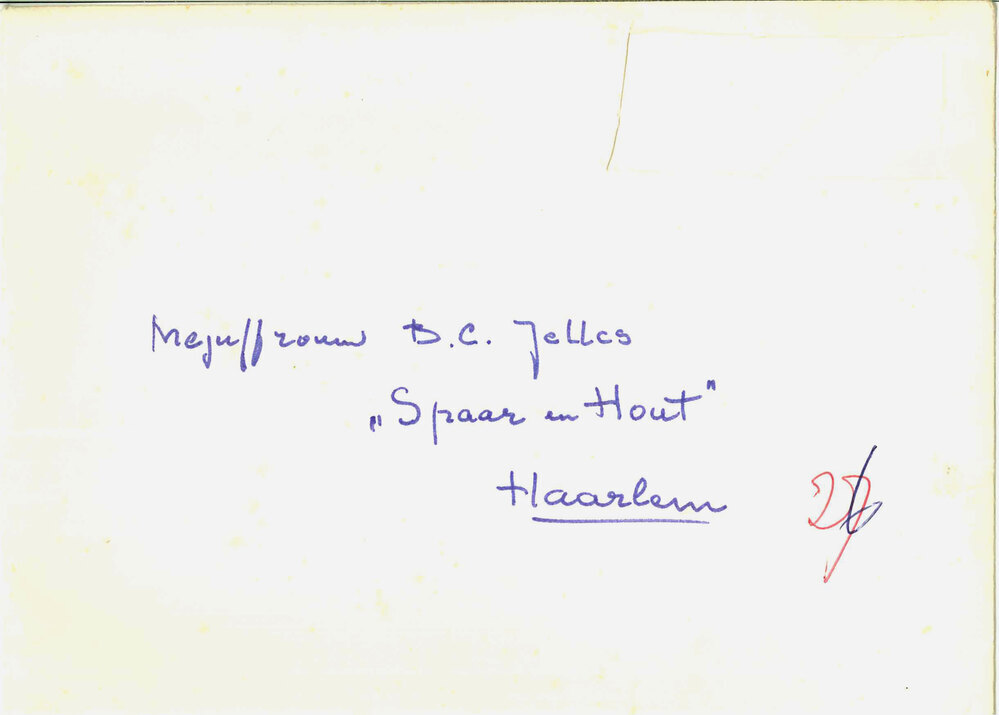 Mejuffrouw B.C. Jelles
„Spaar en Hout"
Haarlem